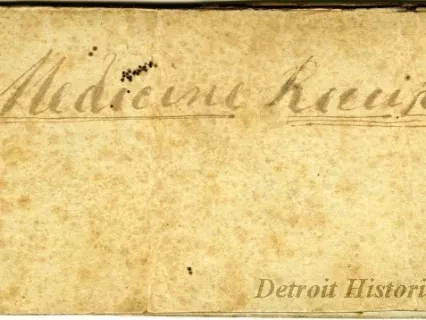 Medicine Receip
Detroit Histori